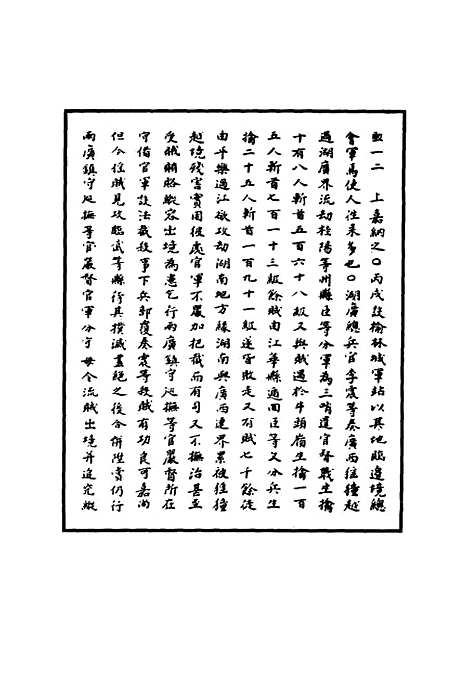 取一二　上嘉納之○丙戌設榆林城軍站以其地臨邊境總
會軍馬使人往來多也○湖廣總兵官李震等奏廣西猺獞越
過湖廣界流劫桂陽等州縣臣等分軍為三哨遣官督戰生擒
十有八人斬首五百六十八級又與賊遇於牛頭嶺生擒一百
五人斬首七百一十三級餘賊南江華縣適回臣等又分兵生
擒二十五人斬首一百九十一級遂皆敗走又有賊七千餘徒
由平樂過江欲攻劫湖南地方緣湖南與廣西連界累被猺獞
越境殘害實因彼處官軍不嚴加把截而有司又不撫治甚至
受賊賄賂縱容出境為患乞行兩廣鎮守廵撫等官嚴督所在
守備官軍設法截殺事下兵部覆奏震等殺賊有功良可嘉尚
但今猺賊見攻臨武等縣行其撲滅盡絕之後令併陞賞仍行
兩廣鎮守廵撫等官嚴督官軍分守毋令流賊出境并追究縱